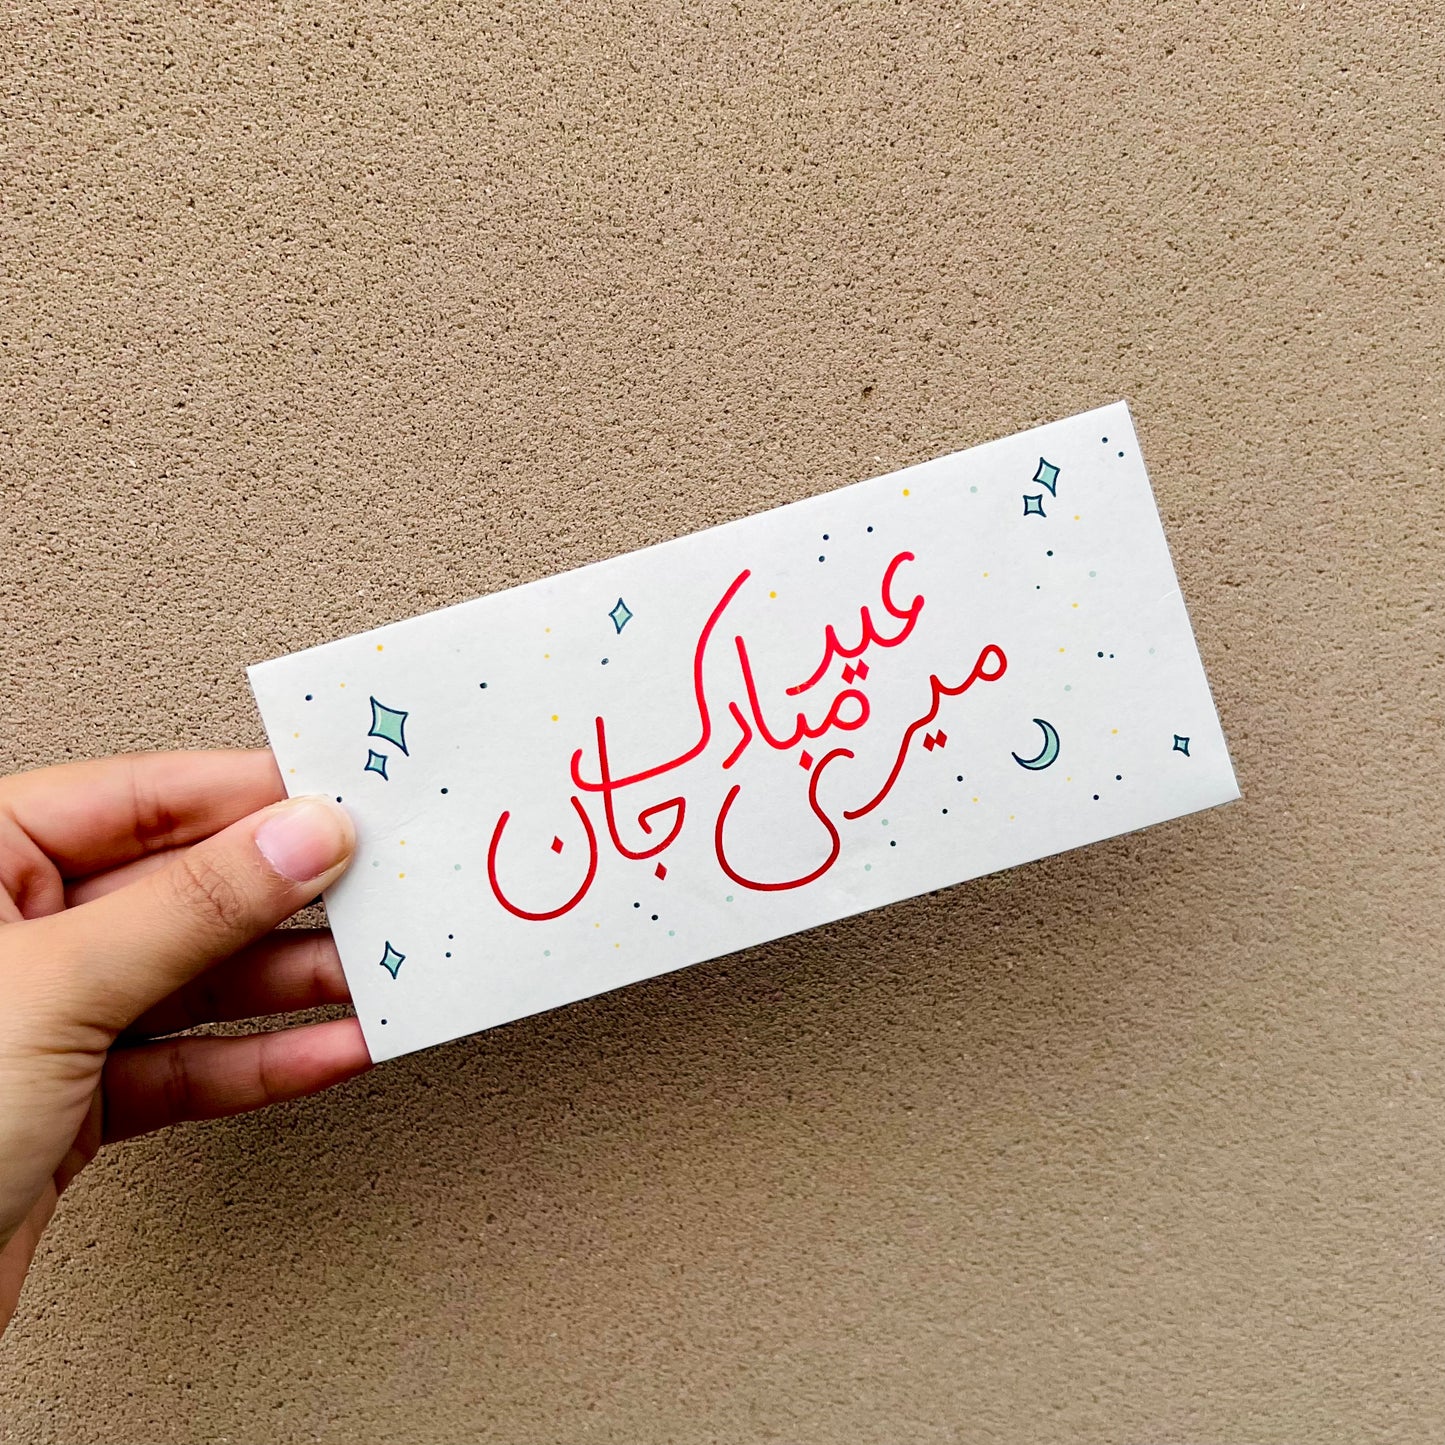 عید مبارک
میری جان